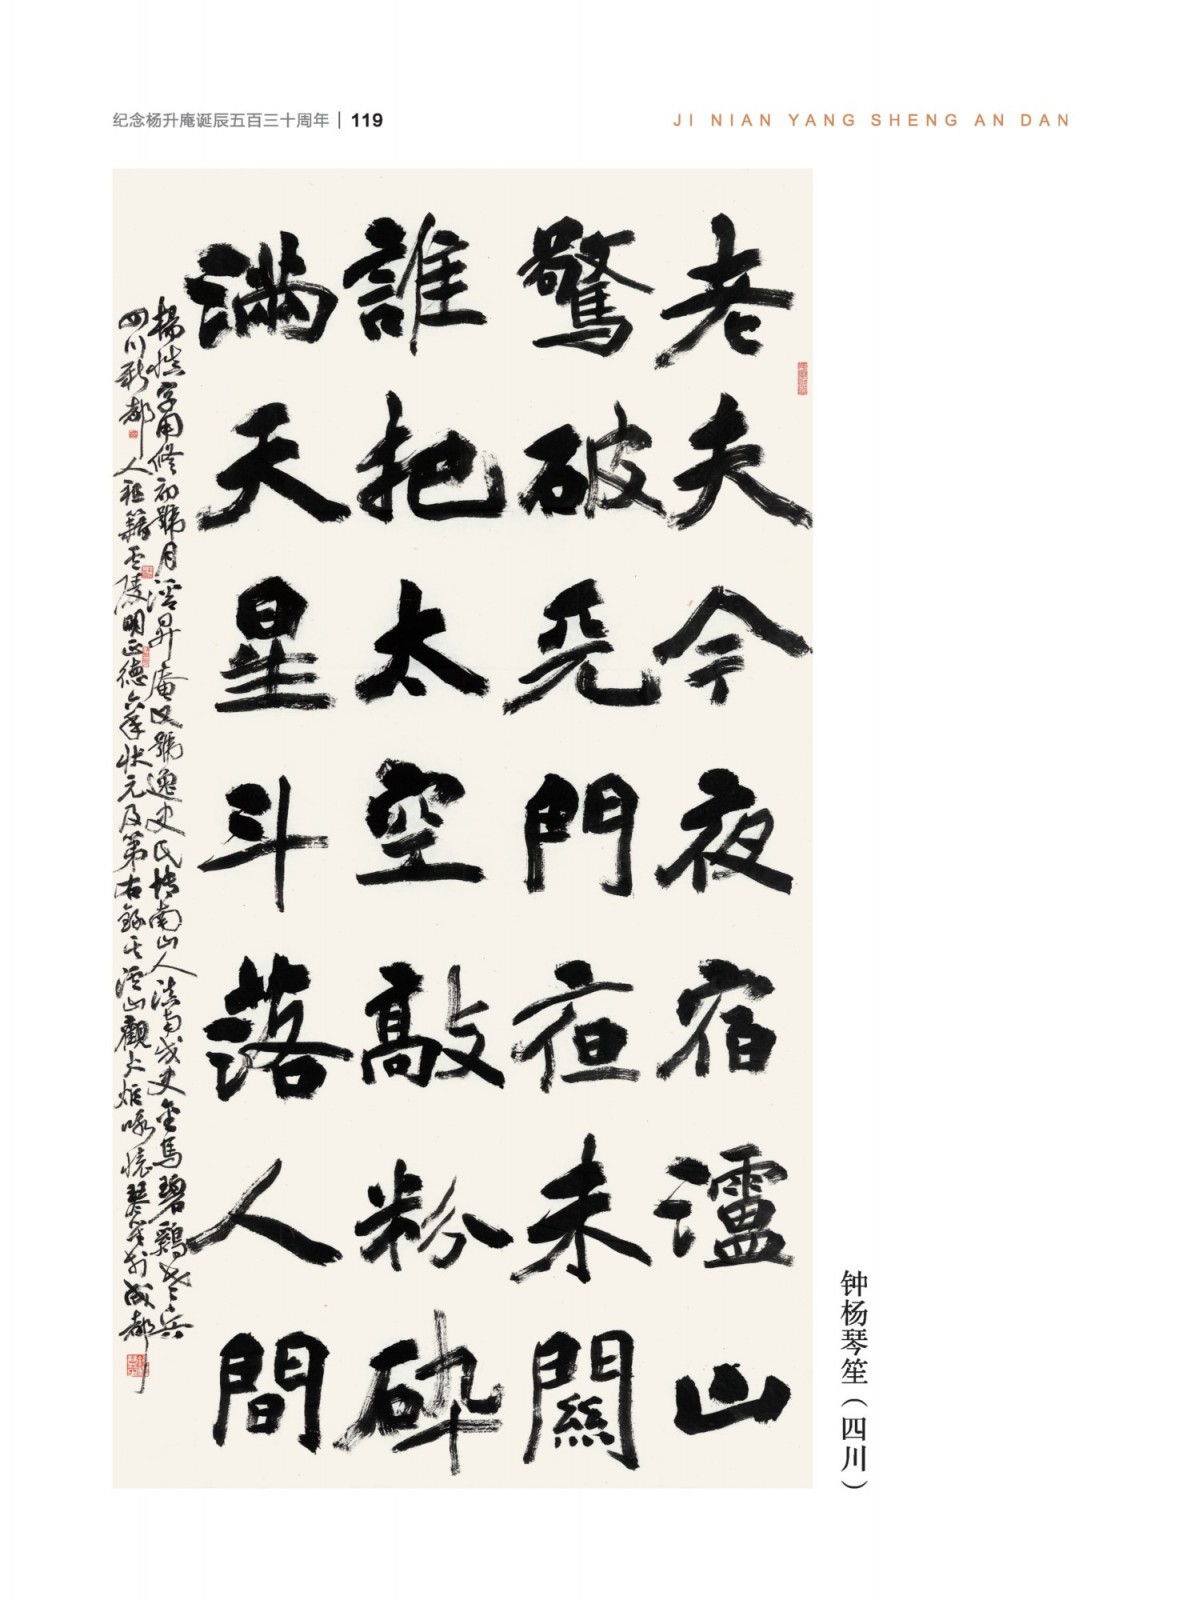 纪念杨升庵诞辰五百三十周年 | 119
JI NIAN YANG SHENG AN DAN
老夫今夜宿瀘山
驚破天門夜未關
誰把太空敲粉砕
滿天星斗落人間
楊慎字用修初號月溪昇庵又號逸史氏博南山人滇南戍史金馬碧鷄老兵
四川新都人祖籍廬陵明正德六年状元及第右錄其瀘山觀火炬咏懷琴笙於成都
钟杨琴笙（四川）